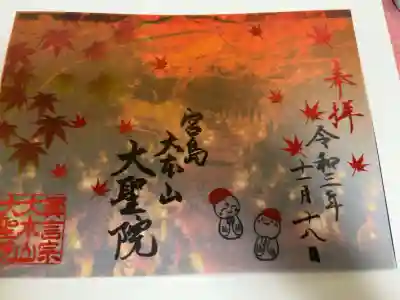 奉拝
令和三年
十一月十八日
宮島
大本山
大聖院
真言宗
大本山
大聖院